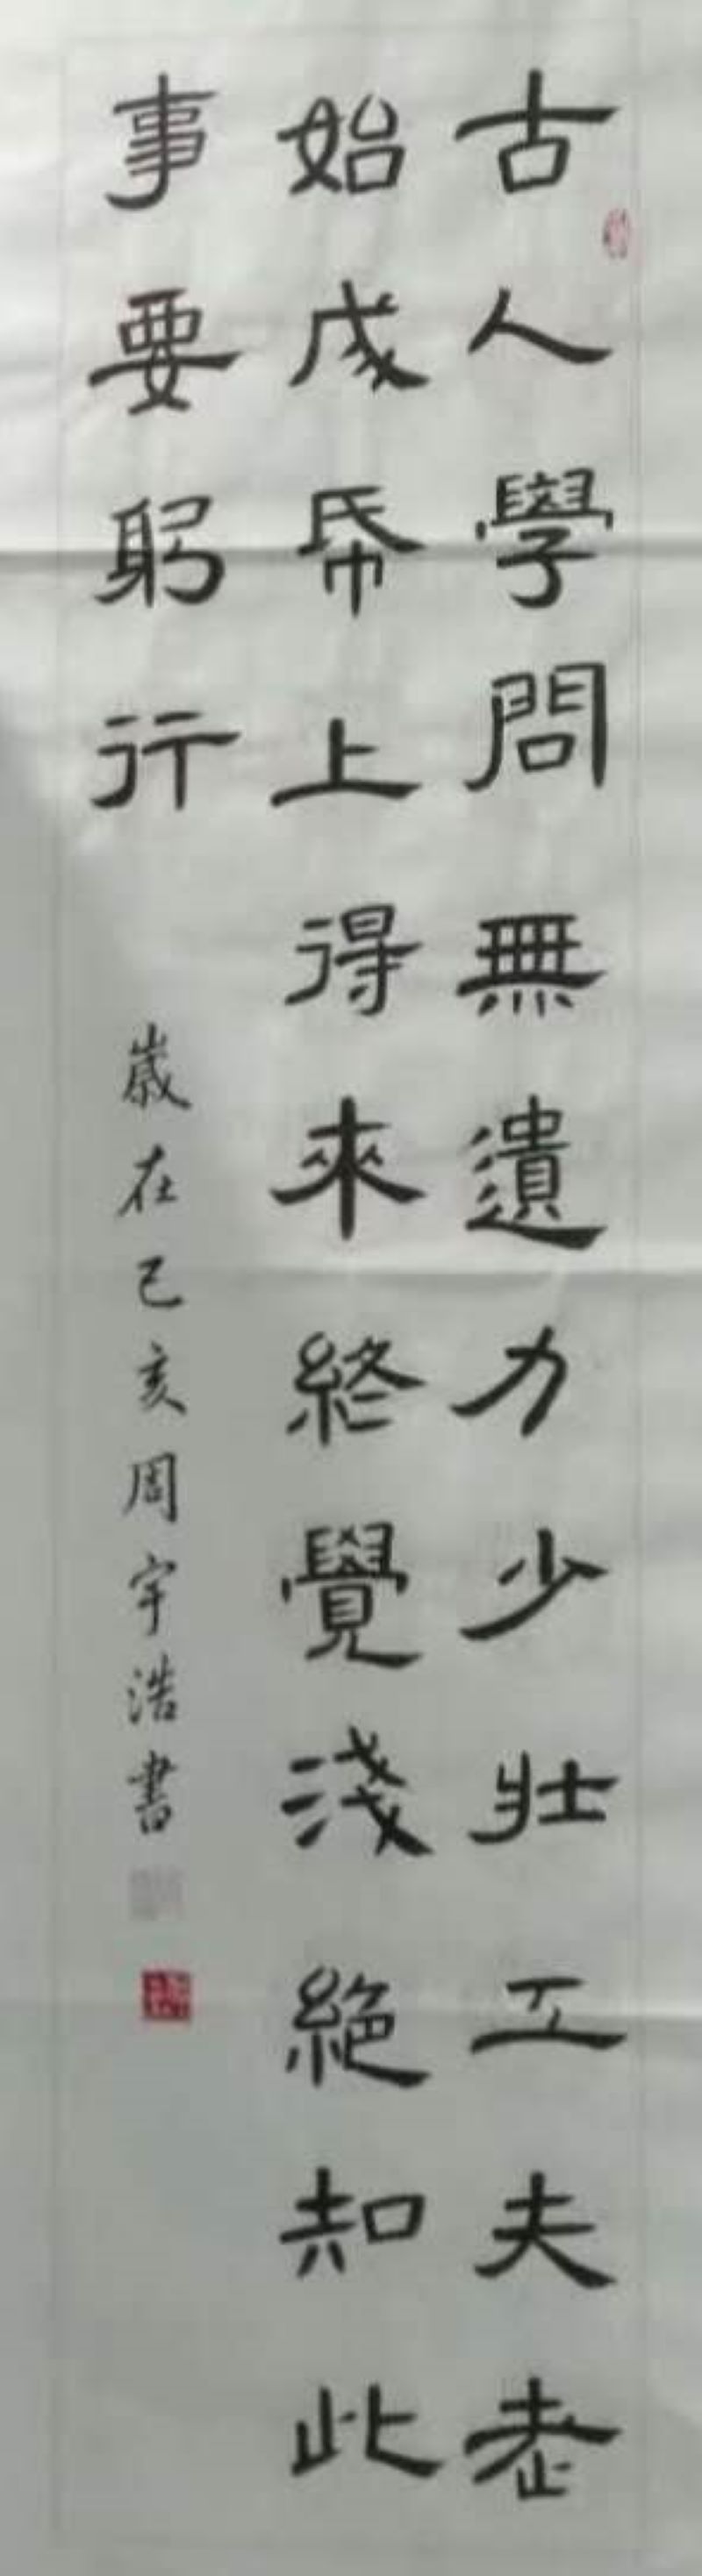 古人學問無遺力少壯工夫老
始成帋上得來終覺淺絕知此
事要躬行
歲在己亥周宇浩書